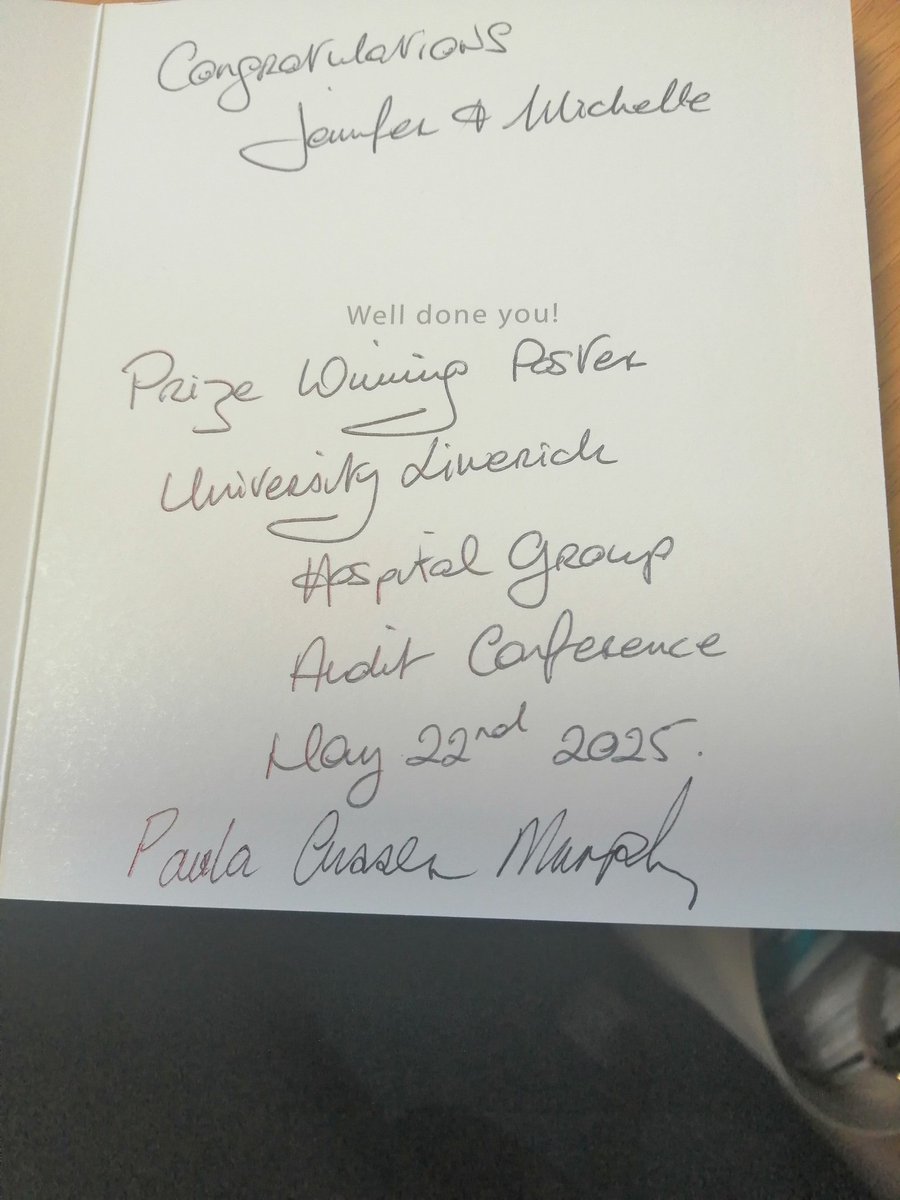 Congratulations
Jennifer & Michelle
Well done you!
Prize Winning Poster
University Limerick
Hospital Group
Audit Conference
May 22nd 2025.
Paula Cussen Murphy